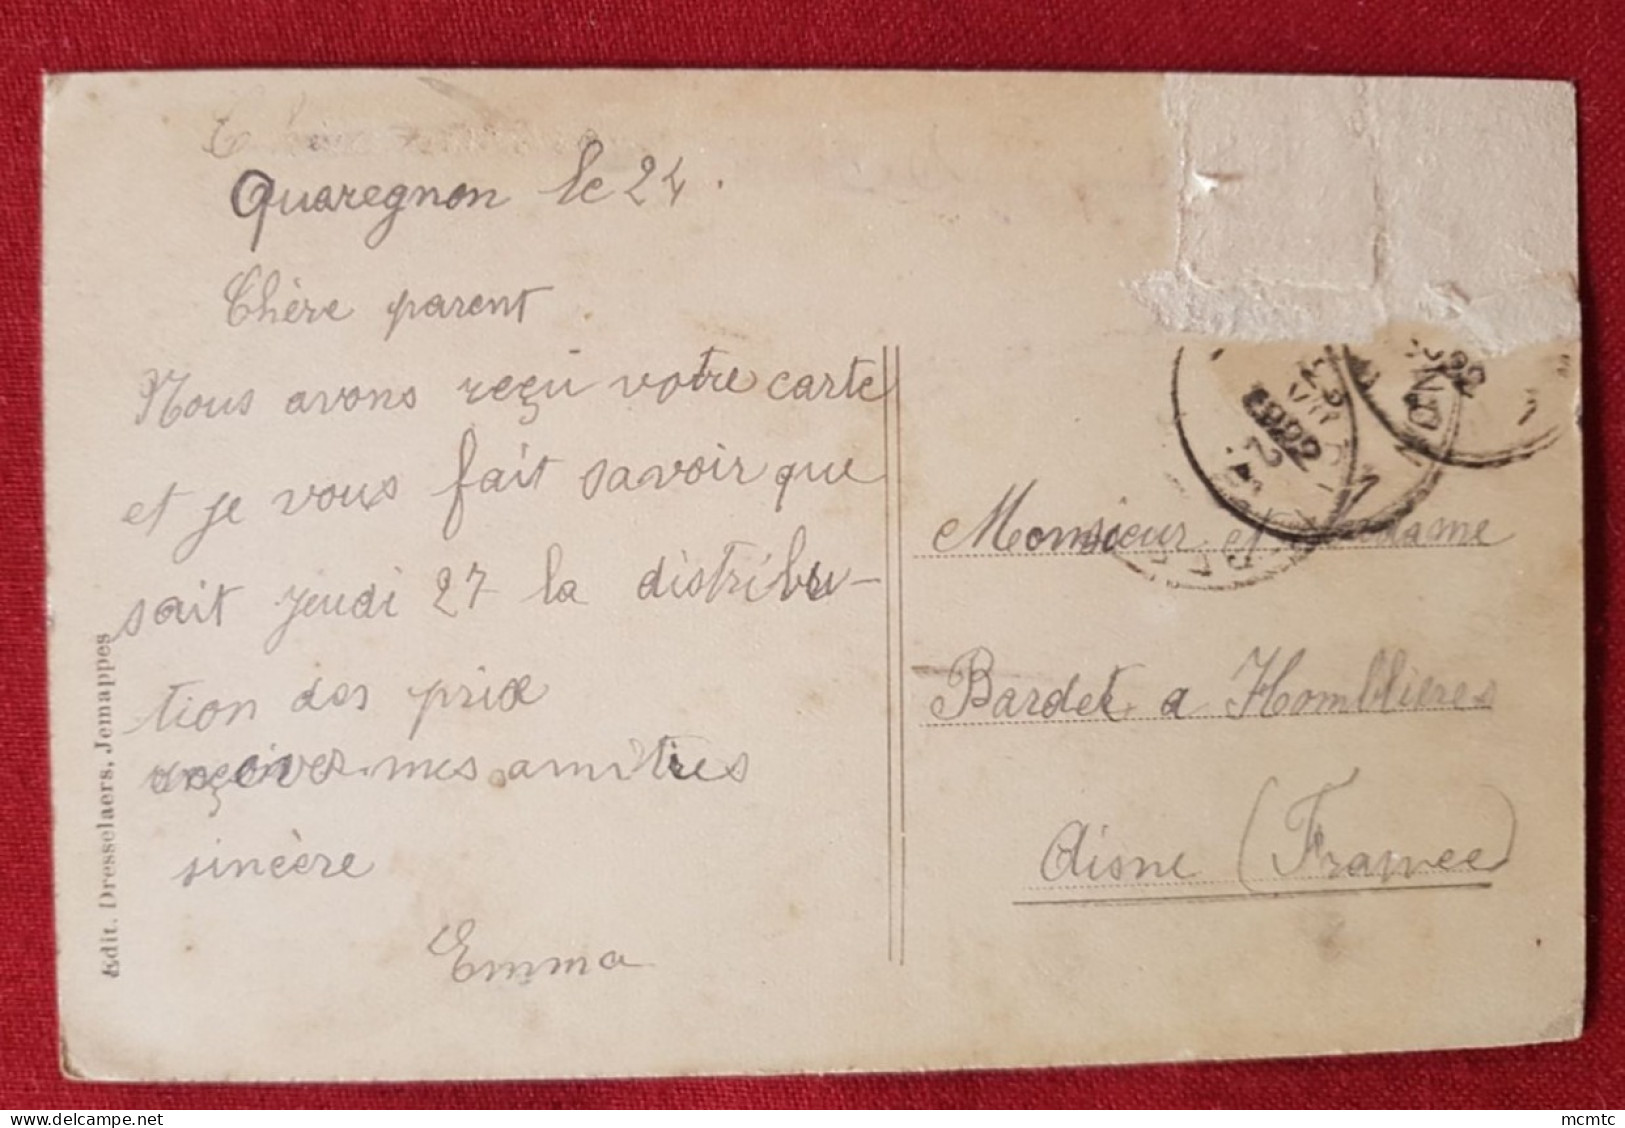 Quaregnon le 24.
Chère parent
Nous avons reçu votre carte
et je vous fait savoir que
sait jeudi 27 la distribu-
tion des prix
mes amitres
sincère
Emma
Monsieur et Madame
Bardet a Homblieres
Aisne (France)
Edit. Dresselaers, Jemappes
mcmtc